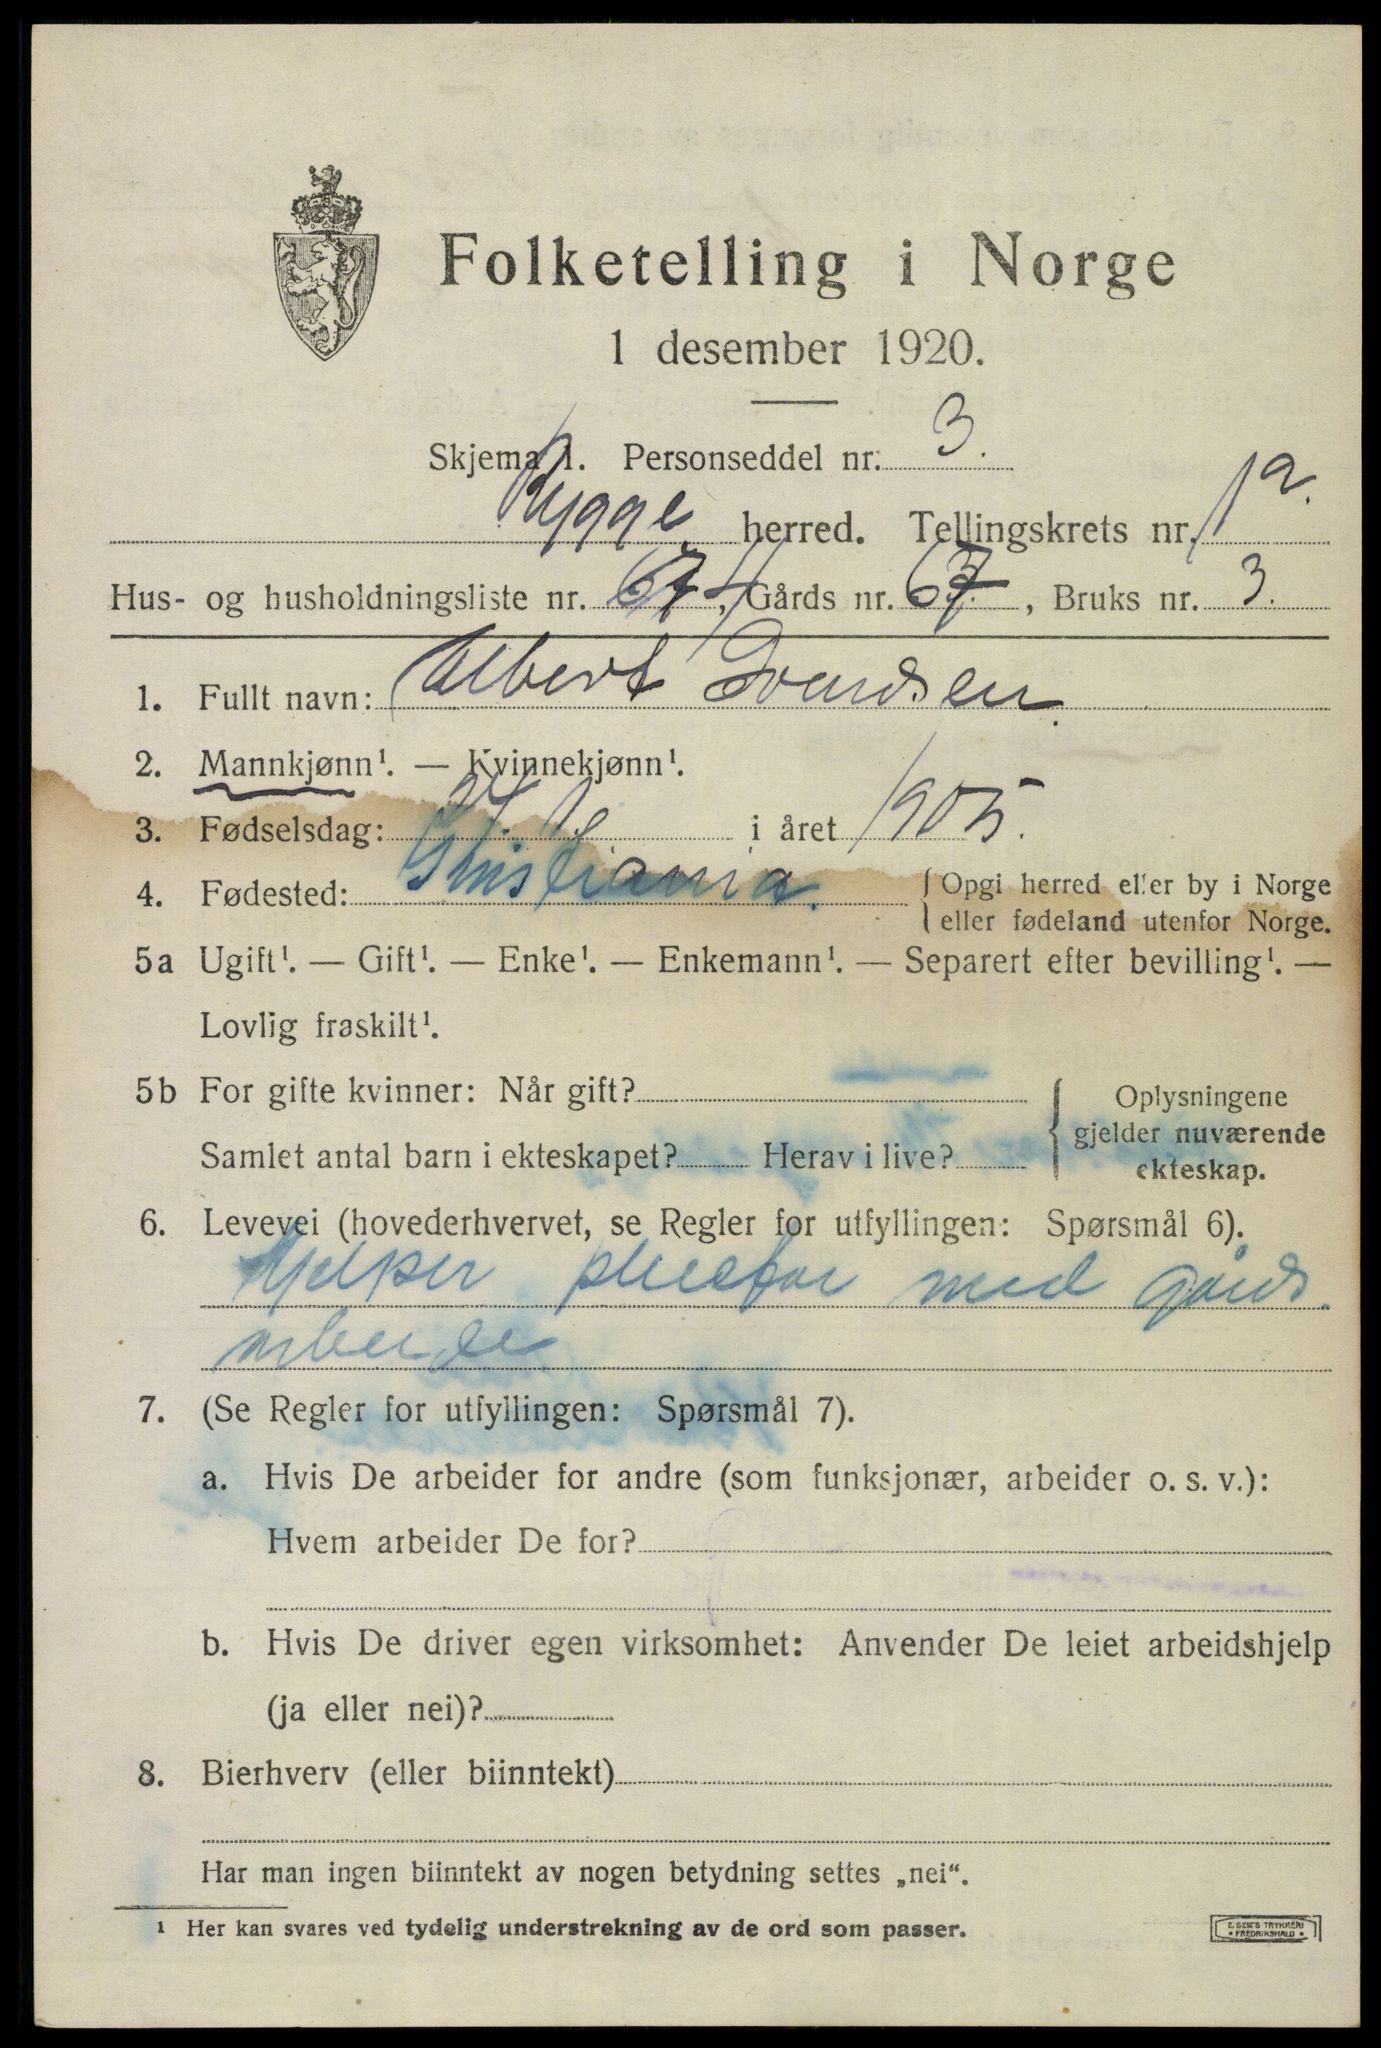 Folketelling i Norge
1 desember 1920.
Skjema 1. Personseddel nr. 3.
Rygge herred. Tellingskrets nr. 1a.
Hus- og husholdningsliste nr. , Gårds nr. , Bruks nr. 3.
1. Fullt navn: Albert
2. Mannkjønn¹. — Kvinnekjønn¹.
3. Fødselsdag: i året 1905.
4. Fødested: Kristiania. { Opgi herred eller by i Norge
eller fødeland utenfor Norge.
5a Ugift¹. — Gift¹. — Enke¹. — Enkemann¹. — Separert efter bevilling¹. —
Lovlig fraskilt¹.
5b For gifte kvinner: Når gift? { Oplysningene
gjelder nuværende
ekteskap.
Samlet antal barn i ekteskapet? Herav i live?
6. Levevei (hovederhvervet, se Regler for utfyllingen: Spørsmål 6).
Hjelper pleiefar med gårds
arbeide
7. (Se Regler for utfyllingen: Spørsmål 7).
a. Hvis De arbeider for andre (som funksjonær, arbeider o. s. v.):
Hvem arbeider De for?
b. Hvis De driver egen virksomhet: Anvender De leiet arbeidshjelp
(ja eller nei)?
8. Bierhverv (eller biinntekt)
Har man ingen biinntekt av nogen betydning settes „nei“.
¹ Her kan svares ved tydelig understrekning av de ord som passer.
E. SEM'S TRYKKERI
• FREDRIKSHALD •